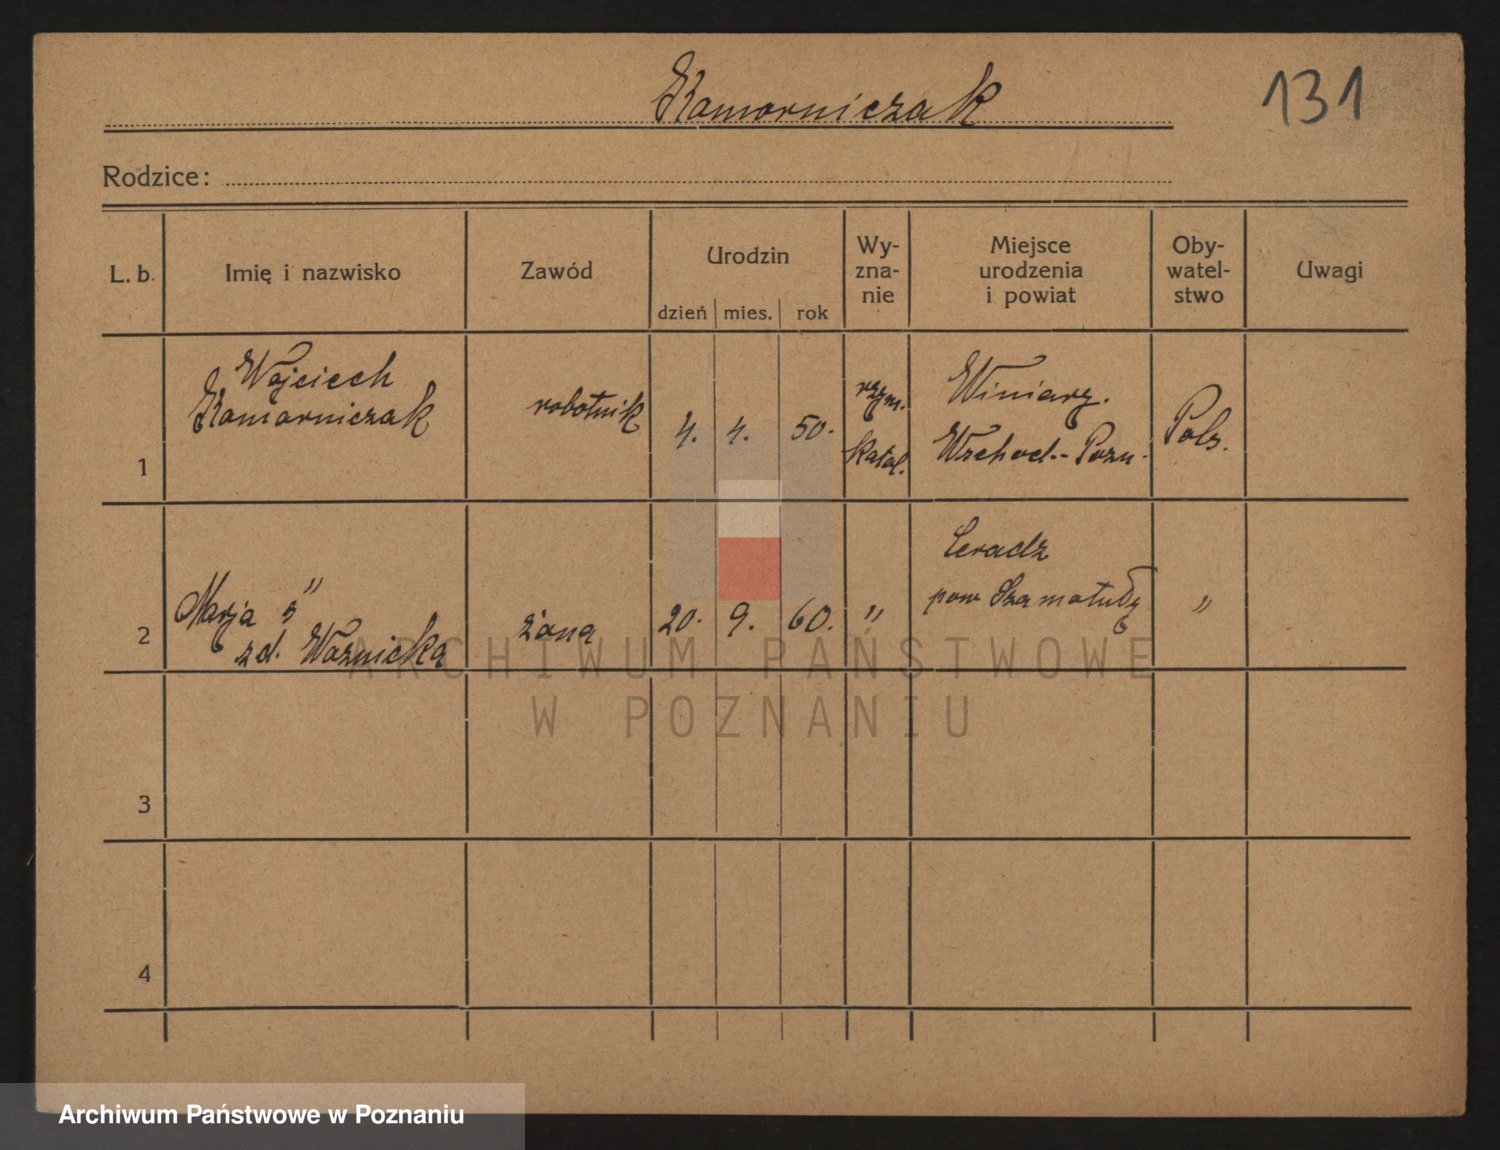 Komorniczak
131
Rodzice:
L. b. Imię i nazwisko Zawód Urodzin Wy-zna-nie Miejsce urodzenia i powiat Oby-watel-stwo Uwagi
dzień mies. rok
1 Wojciech Komorniczak robotnik 4. 4. 50. rzym. katol. Winiary. Wschod.-Pozn. Pols.
2 Marja " zd. Woznicka żona 20. 9. 60. " Ceradz pow Szamotuły "
3
4
ARCHIWUM PAŃSTWOWE
W POZNANIU
Archiwum Państwowe w Poznaniu